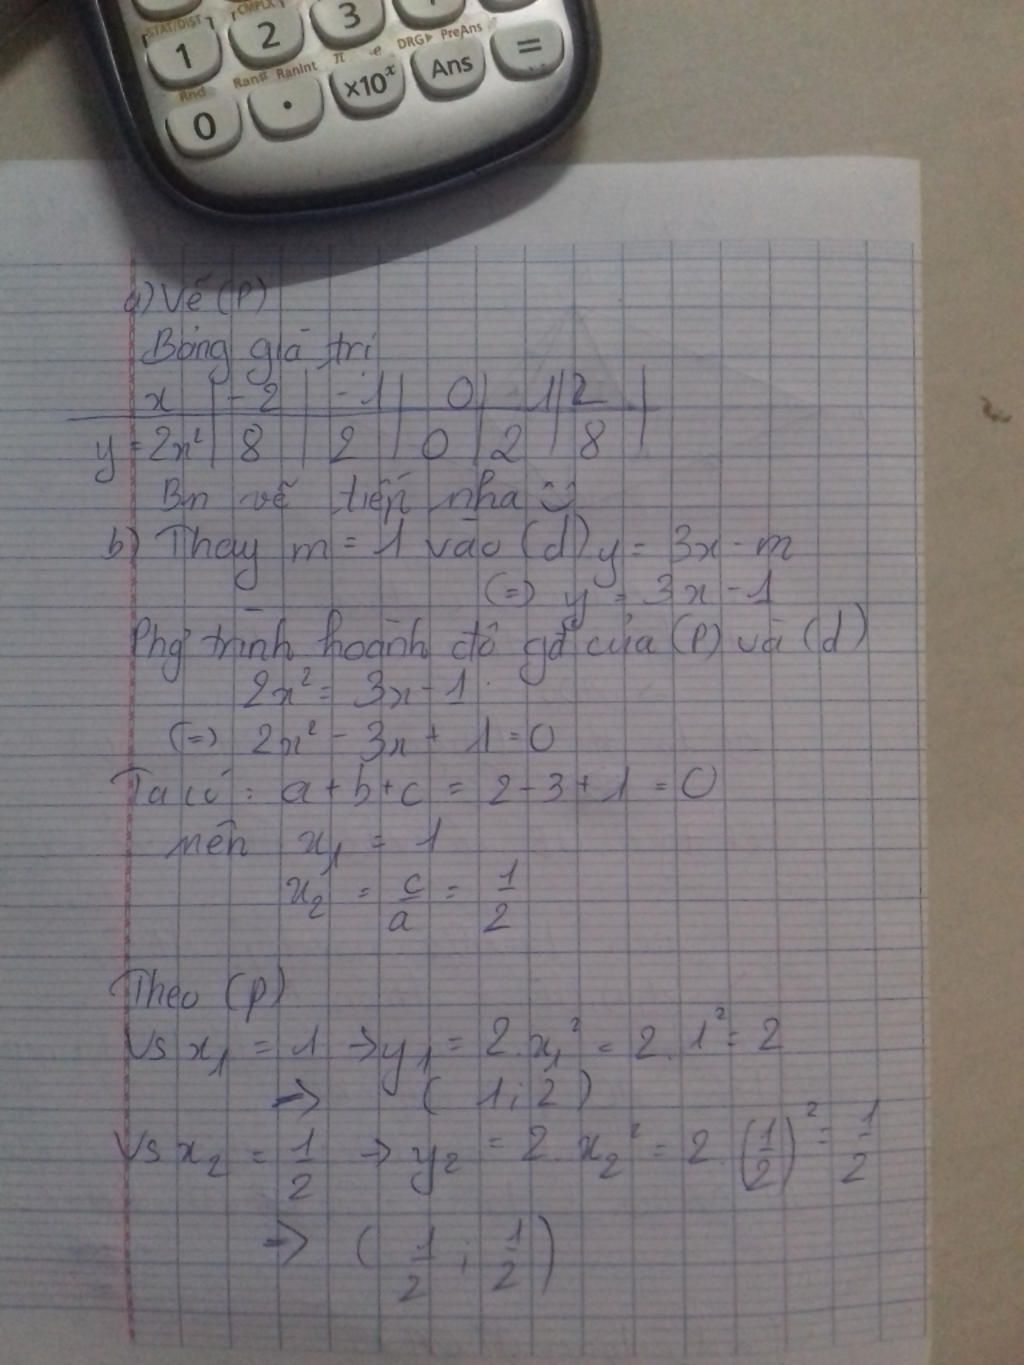 STAT/DIST CMPLX
1 2 3
Rnd Ran# RanInt π e DRG▸ PreAns
0 . ×10ˣ Ans =
a) Vẽ (P)
Bảng giá trị
x | -2 | -1 | 0 | 1 | 2 |
y = 2x² | 8 | 2 | 0 | 2 | 8 |
Bn vẽ tiếp nha
b) Thay m = 1 vào (d) y = 3x - m
(=) y = 3x - 1
Phg trình hoành độ gđ của (P) và (d)
2x² = 3x - 1
(=) 2x² - 3x + 1 = 0
Ta có : a + b + c = 2 - 3 + 1 = 0
nên x₁ = 1
x₂ = c/a = 1/2
Theo (P)
Vs x₁ = 1 → y₁ = 2.x₁² = 2.1² = 2
→ (1; 2)
Vs x₂ = 1/2 → y₂ = 2.x₂² = 2.(1/2)² = 1/2
→ (1/2 ; 1/2)